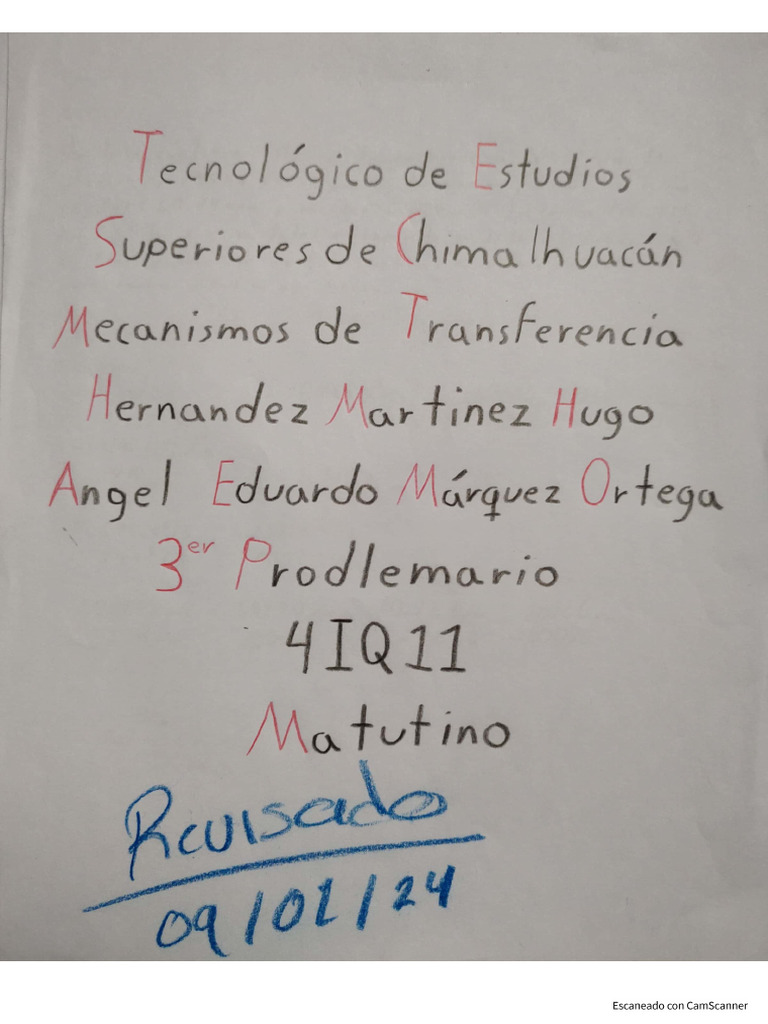 Tecnológico de Estudios
Superiores de Chimalhuacán
Mecanismos de Transferencia
Hernandez Martinez Hugo
Angel Eduardo Márquez Ortega
3er Prodlemario
4IQ11
Matutino
Revisado
09/01/24
Escaneado con CamScanner